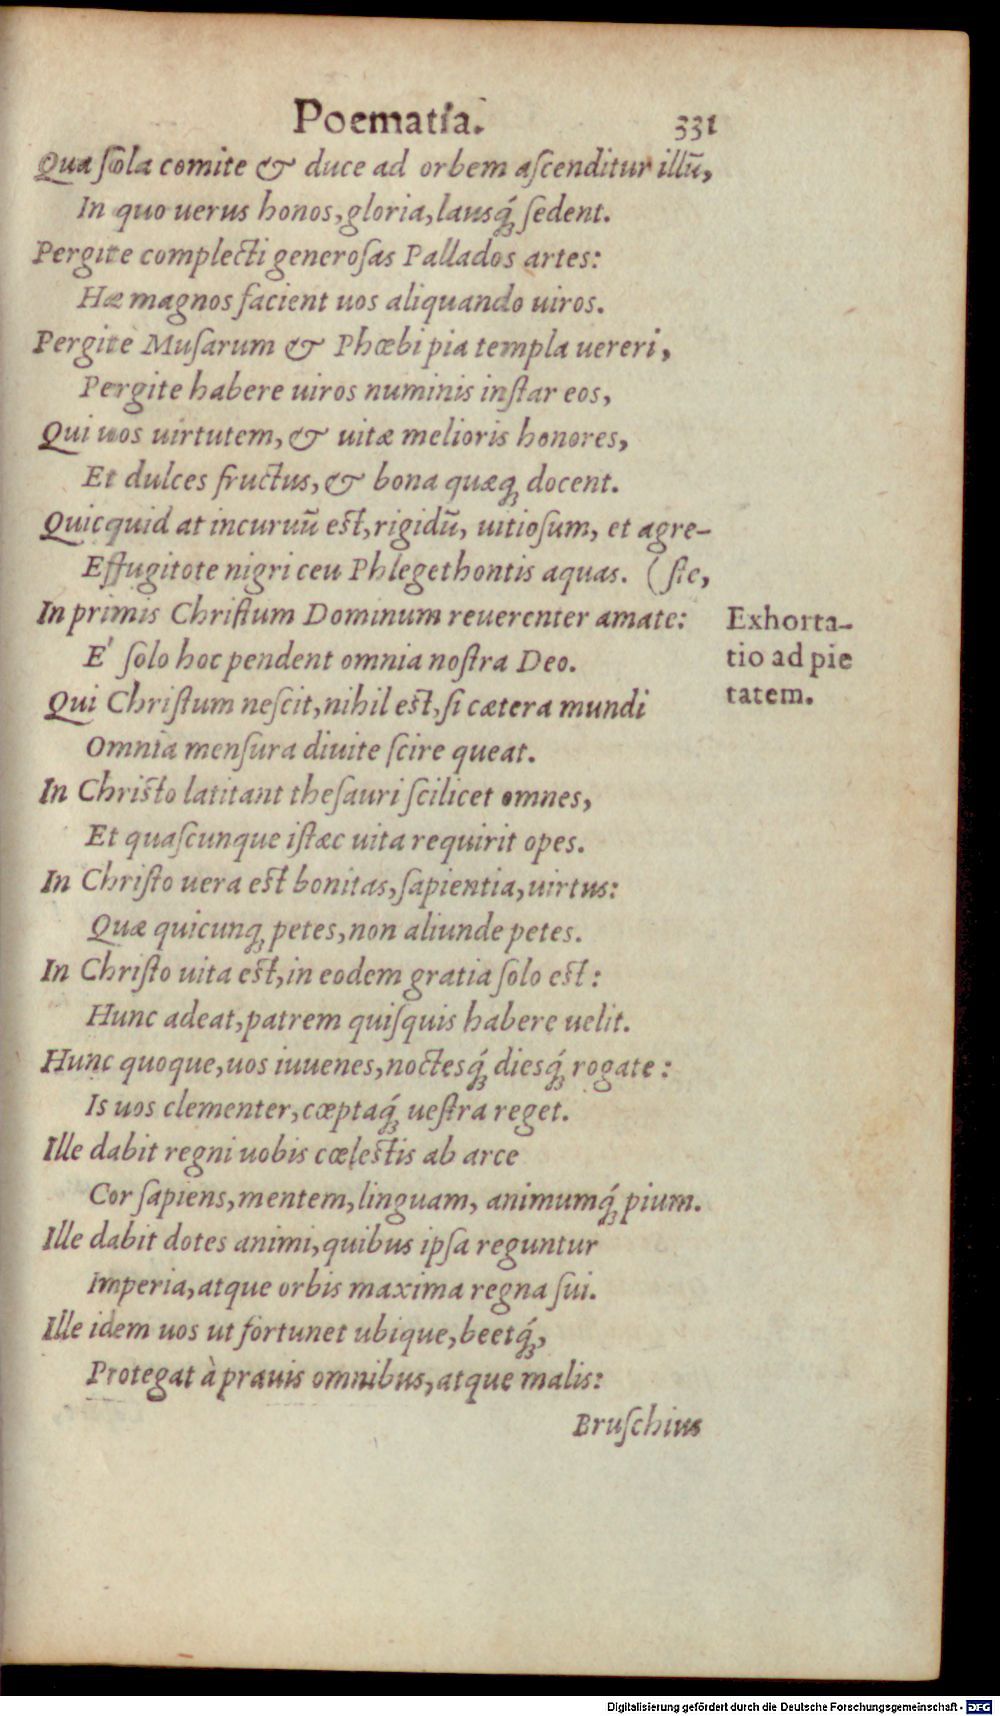 Poematia. 331
Qua ſola comite & duce ad orbem aſcenditur illũ,
In quo uerus honos, gloria, lausq́; ſedent.
Pergite complecti generoſas Pallados artes:
Hæ magnos facient uos aliquando uiros.
Pergite Muſarum & Phœbi pia templa uereri,
Pergite habere uiros numinis inſtar eos,
Qui uos uirtutem, & uitæ melioris honores,
Et dulces fructus, & bona quæq; docent.
Quicquid at incuruũ eſt, rigidũ, uitioſum, et agre-
Effugitote nigri ceu Phlegethontis aquas. (ſte,
In primis Chriſtum Dominum reuerenter amate:
E' ſolo hoc pendent omnia noſtra Deo.
Qui Chriſtum neſcit, nihil eſt, ſi cætera mundi
Omnia menſura diuite ſcire queat.
In Chriſto latitant theſauri ſcilicet omnes,
Et quaſcunque iſtæc uita requirit opes.
In Chriſto uera eſt bonitas, ſapientia, uirtus:
Quæ quicunq; petes, non aliunde petes.
In Chriſto uita eſt, in eodem gratia ſolo eſt:
Hunc adeat, patrem quiſquis habere uelit.
Hunc quoque, uos iuuenes, noctesq́; diesq́; rogate:
Is uos clementer, cœptaq́; ueſtra reget.
Ille dabit regni uobis cœleſtis ab arce
Cor ſapiens, mentem, linguam, animumq́; pium.
Ille dabit dotes animi, quibus ipſa reguntur
Imperia, atque orbis maxima regna ſui.
Ille idem uos ut fortunet ubique, beetq́;,
Protegat à prauis omnibus, atque malis:
Bruſchius
Exhorta-
tio ad pie
tatem.
Digitalisierung gefördert durch die Deutsche Forschungsgemeinschaft - DFG